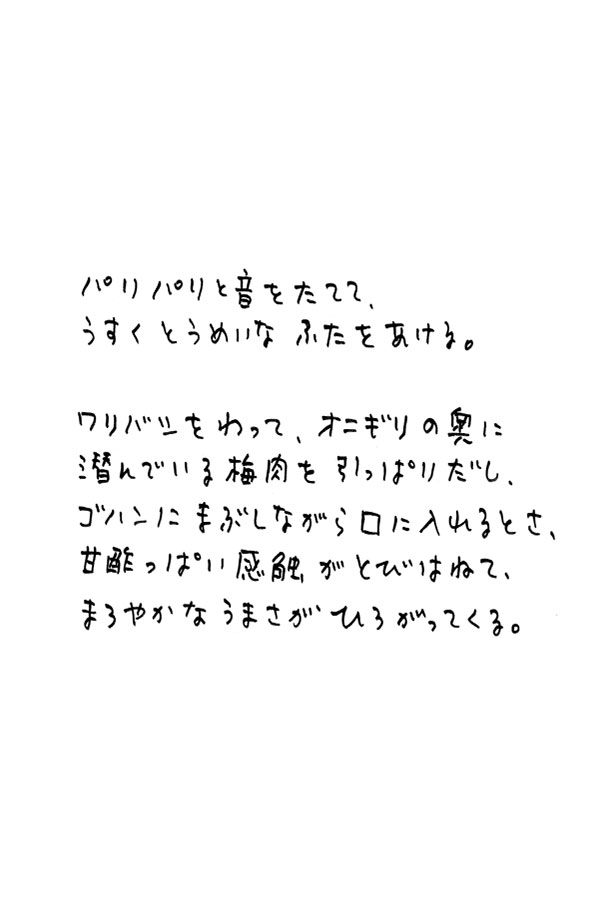 パリパリと音をたてて、
うすくとうめいなふたをあける。
ワリバシをわって、オニギリの奥に
潜んでいる梅肉を引っぱりだし、
ゴハンにまぶしながら口に入れるとさ、
甘酢っぱい感触がとびはねて、
まろやかなうまさがひろがってくる。